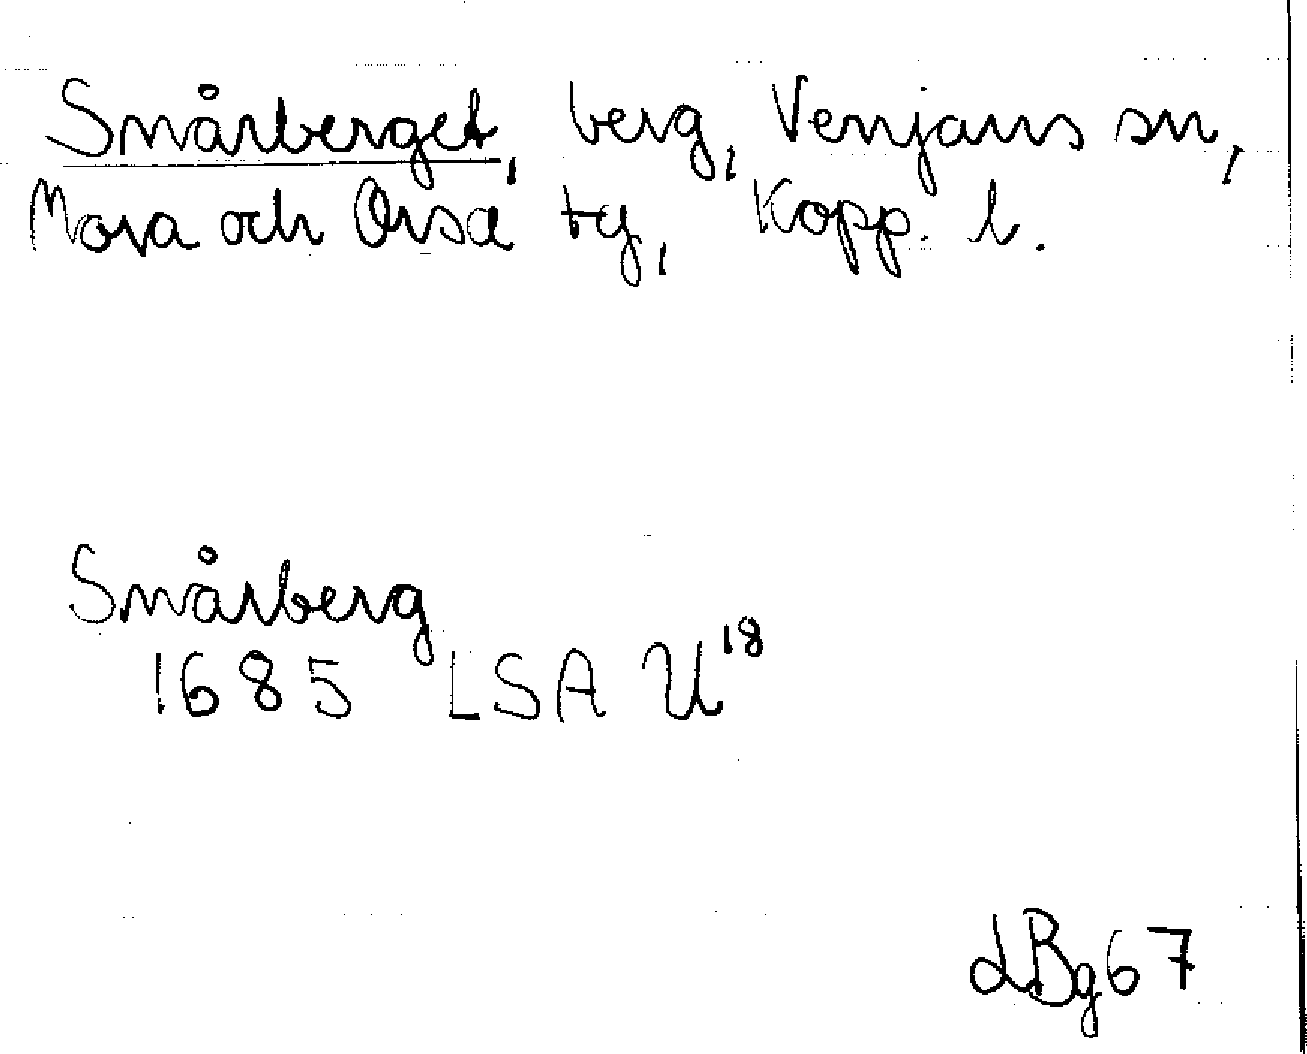 Smårberget, berg, Venjans sn,
Mora och Orsa tg, Kopp. l.
Smårberg
1685 LSA U¹⁸
LBg67